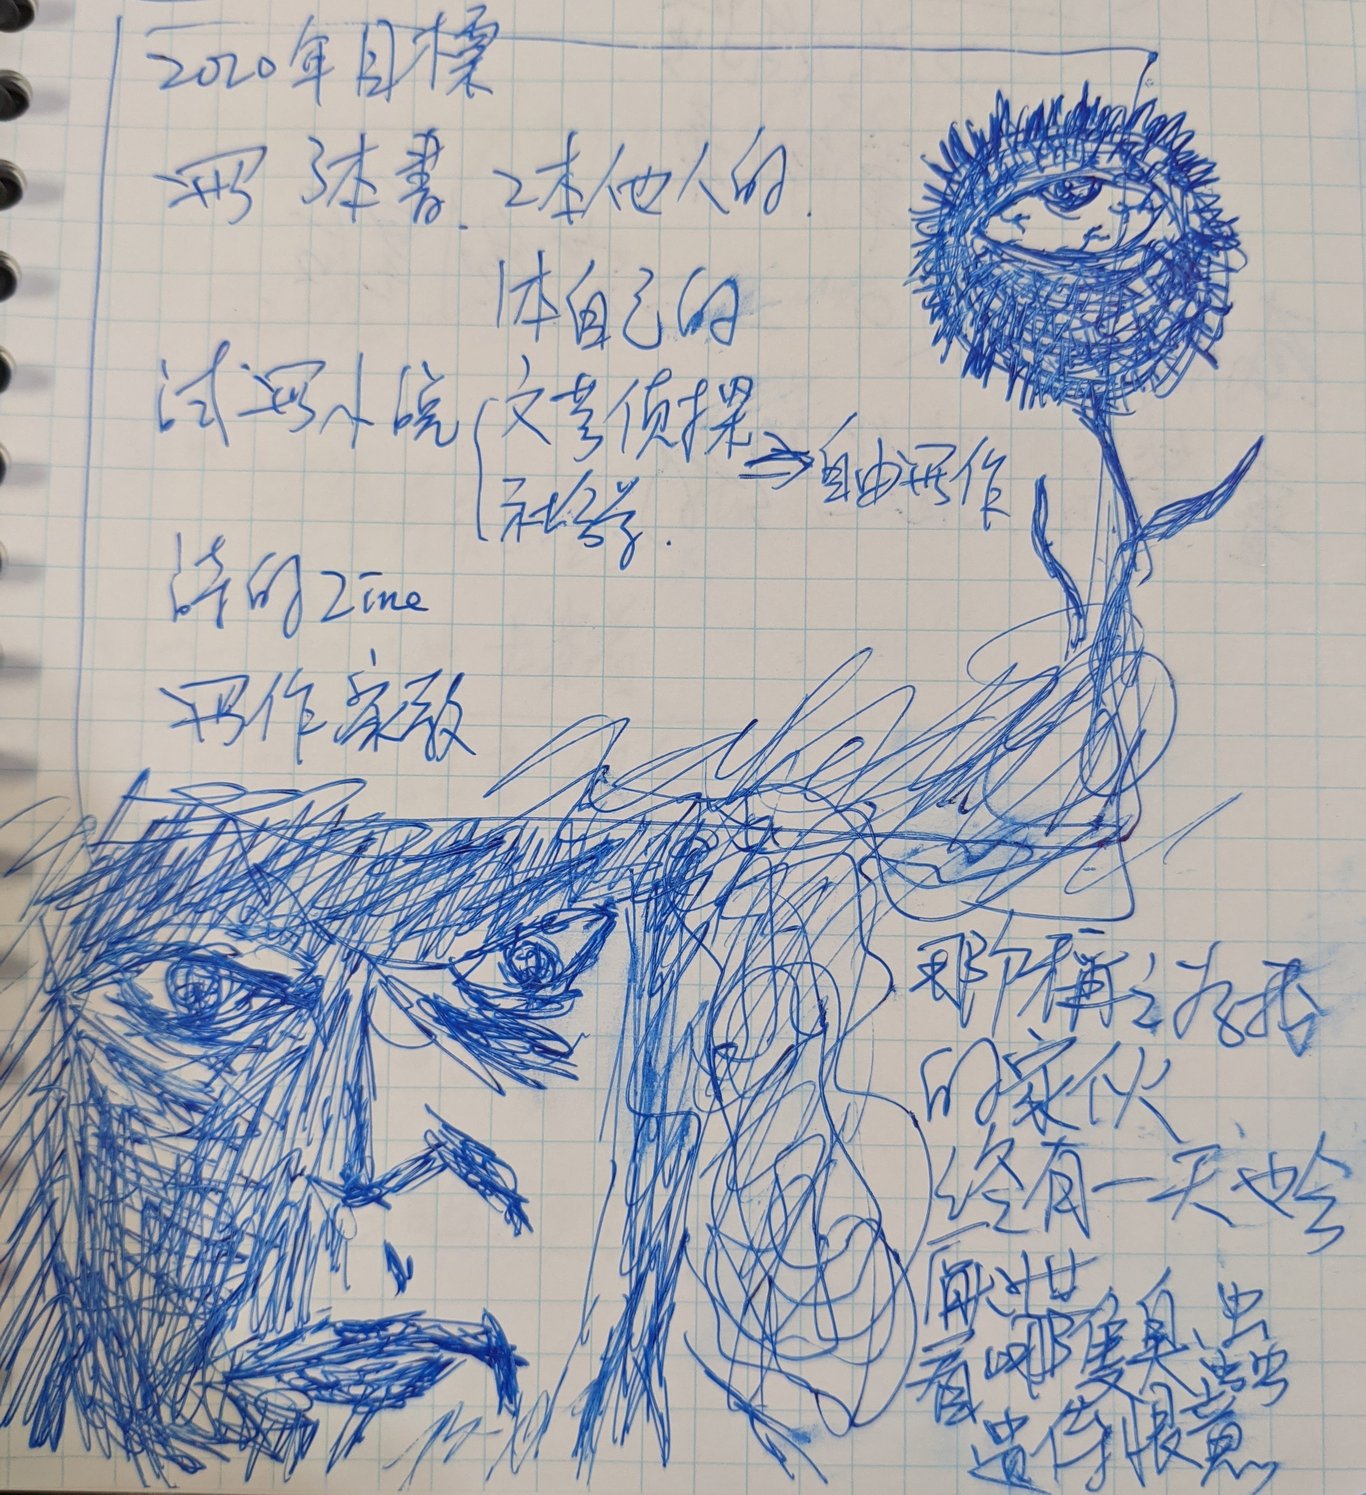 2020年目標
寫3本書. 2本他人的.
1本自己的
試寫小說 { 文藝偵探
社會学. ⇒ 自由寫作
詩的Zine
寫作家教
那个稱之為我
的家伙
終有一天也会
厭世
看哪隻臭蟲
遺傳恨意